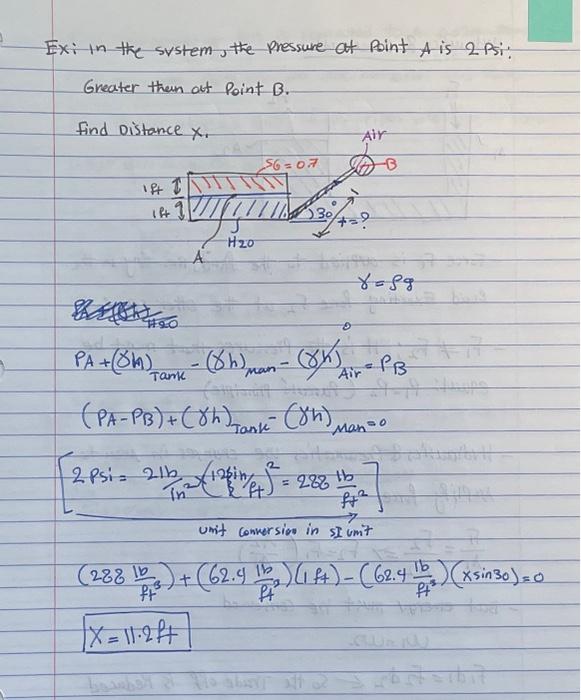 Ex: in the system, the Pressure at Point A is 2 Psi:
Greater then at Point B.
find Distance x.
Air
SG = 0.7
B
1 ft
1 ft
30°
x = ?
H2O
A
γ = ρg
H2O
PA + (γh)Tank - (γh)man - (γh)Air = PB
0
(PA - PB) + (γh)Tank - (γh)Man = 0
[2 Psi = 2 lb/in² × (12 in/ft)² = 288 lb/ft²]
unit conversion in SI unit
(288 lb/ft³) + (62.4 lb/ft³)(1 ft) - (62.4 lb/ft³)(x sin30) = 0
X = 11.2 ft